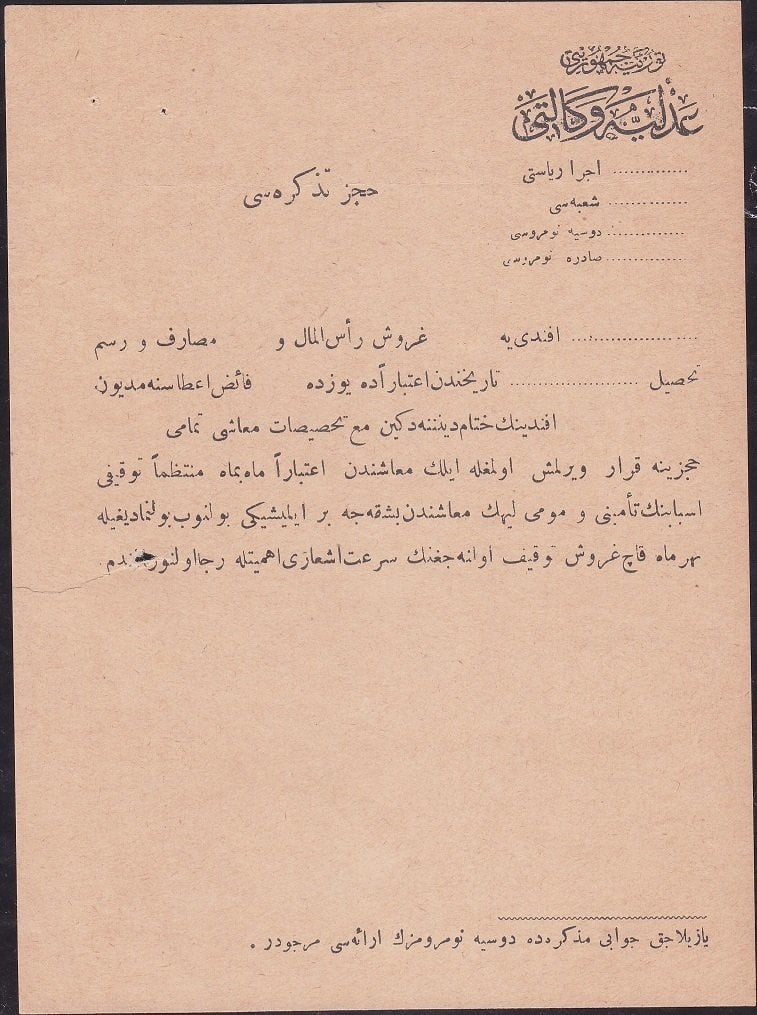 توركیه جمهوریتی
عدلیه وكالتی
............. اجرا ریاستی
............. شعبه‌سی
............. دوسیه نومروسی
............. صادره نومروسی
حجز تذكره‌سی
.................. افندی‌یه غروش رأس‌المال و مصارف و رسم
تحصیل .................. تاریخندن اعتباراً ده یوزده فائض اعطاسنه مدیون
افندینك ختام دیننه دكین مع تخصیصات معاشی تمامی
حجزینه قرار ویرلمش اولمغله ایلك معاشندن اعتباراً ماه بماه منتظماً توقیفی
اسبابنك تأمینی و مومی الیهك معاشندن بشقه‌جه بر ایلیشیكی بولنوب بولنمادیغیله
بهر ماه قاچ غروش توقیف اولنه‌جغنك سرعت اشعاری اهمیتله رجا اولنور افندم
یازیلاجق جوابی مذكره‌ده دوسیه نومرومزك ارائه‌سی مرجودر .